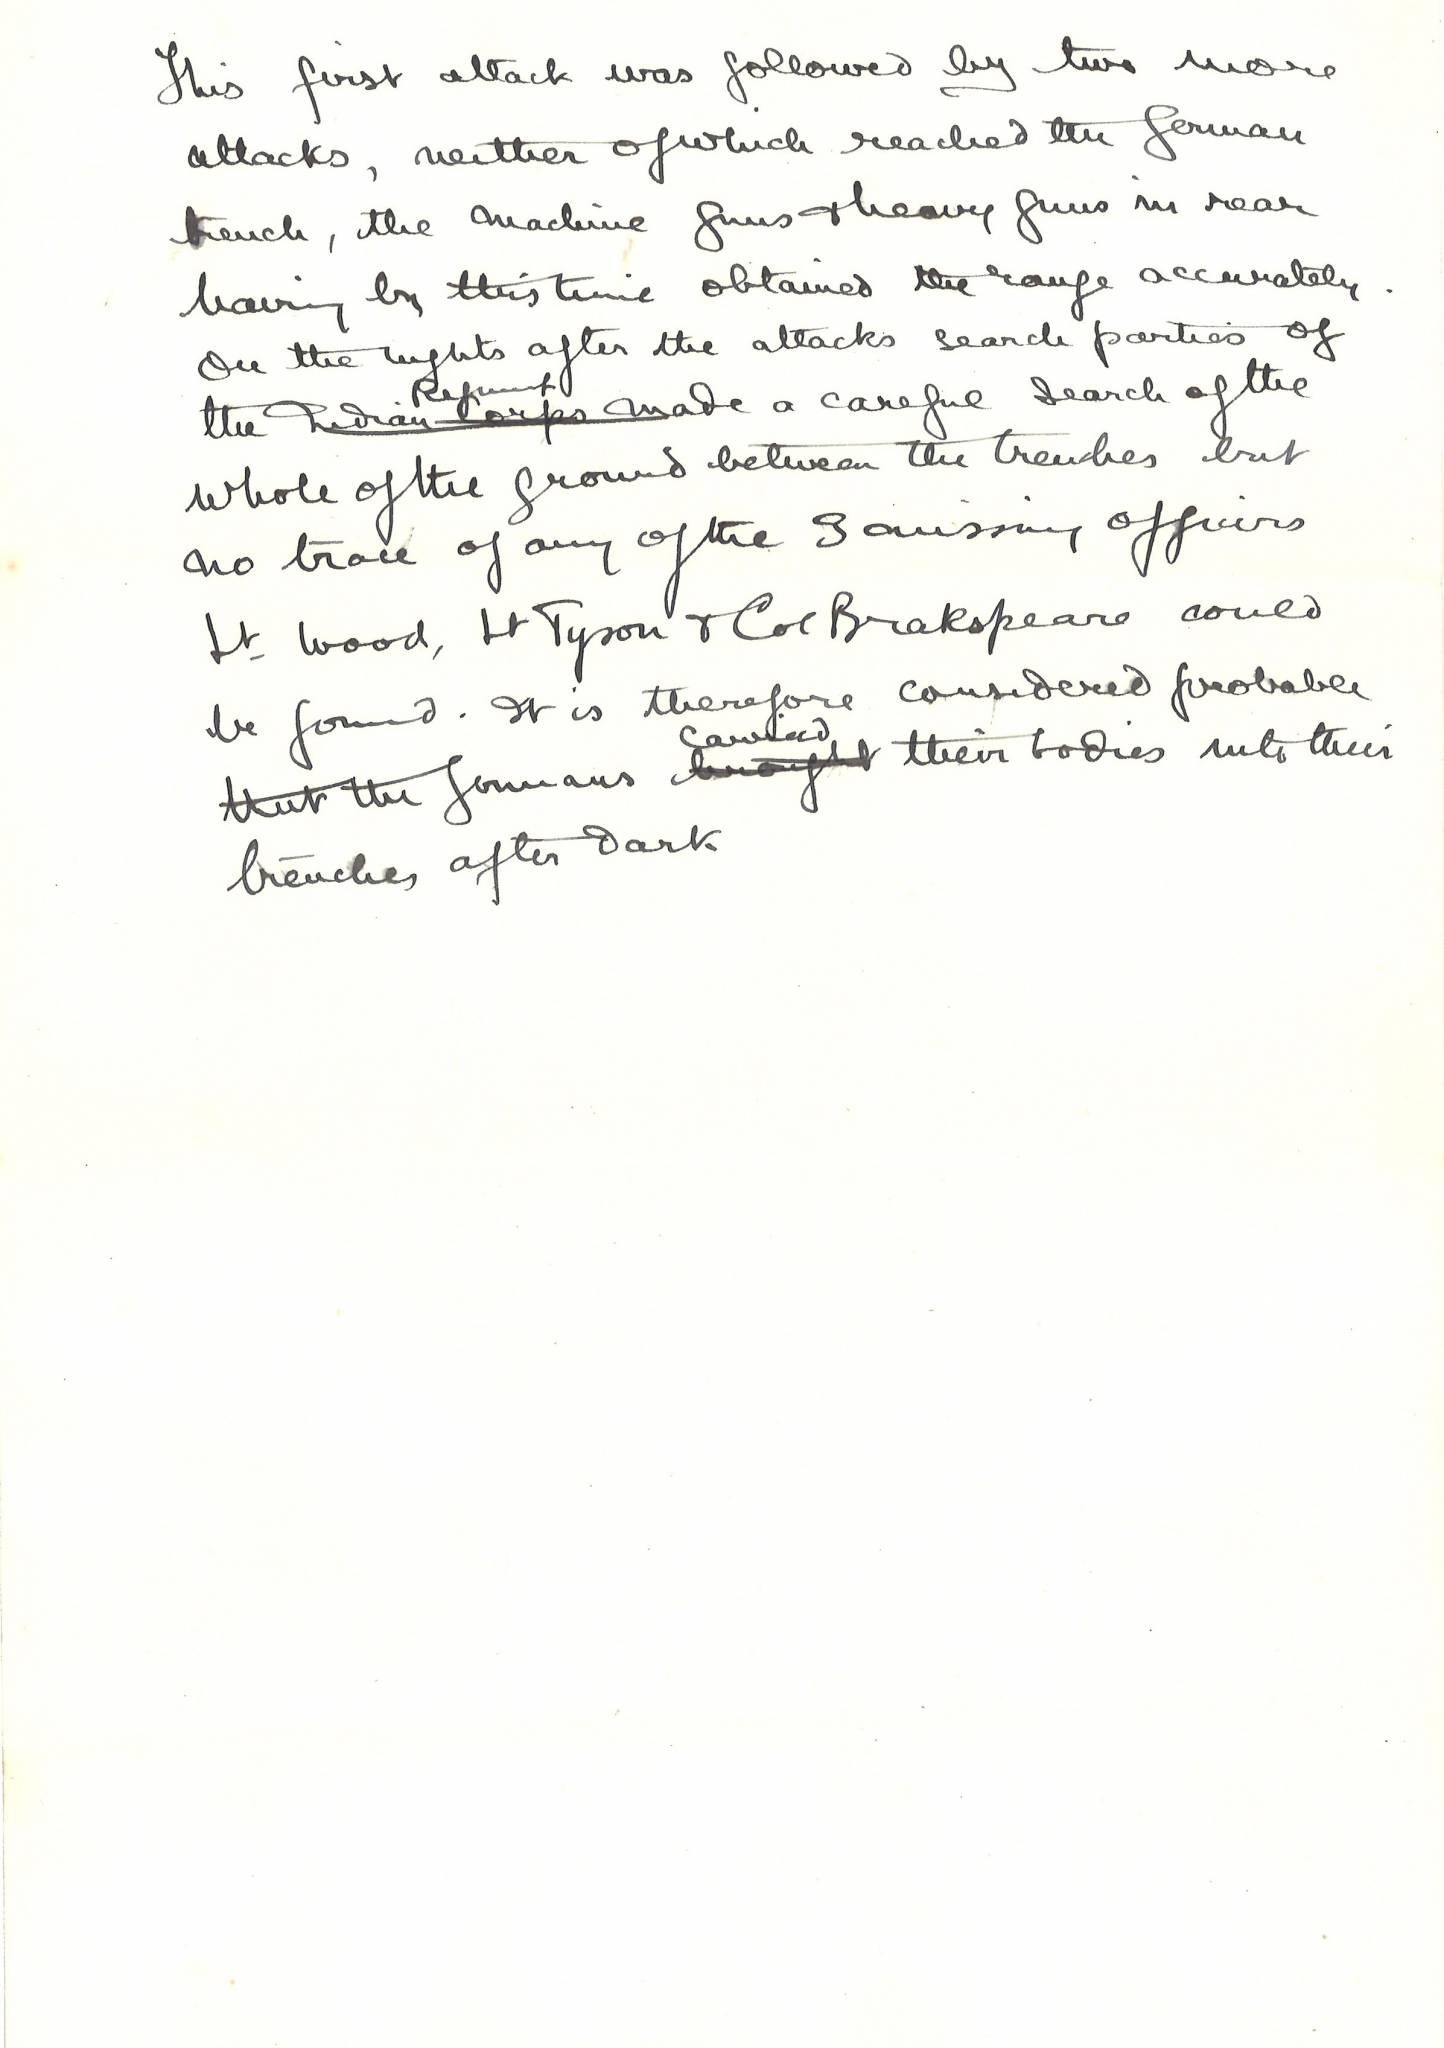 This first attack was followed by two more
attacks, neither of which reached the German
trench, the machine guns & heavy guns in rear
having by this time obtained the range accurately.
On the nights after the attacks search parties of
Regiment
the Indian Corps made a careful search of the
whole of the ground between the trenches but
no trace of any of the 3 missing officers
Lt. Wood, Lt Tyson & Col Brakspeare could
be found. It is therefore considered probable
carried
that the Germans brought their bodies into their
trenches after dark